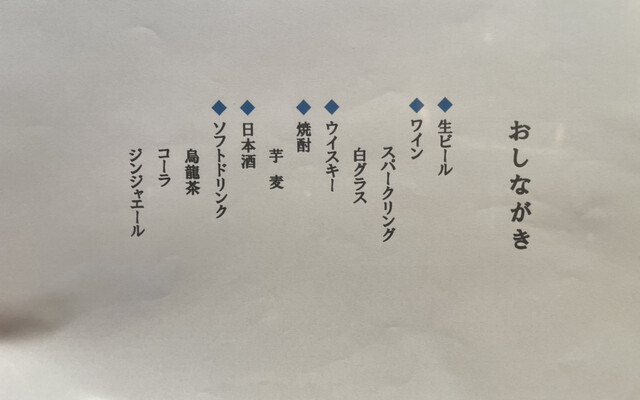 おしながき
◆生ビール
◆ワイン
スパークリング
白グラス
◆ウイスキー
◆焼酎
芋 麦
◆日本酒
◆ソフトドリンク
烏龍茶
コーラ
ジンジャエール